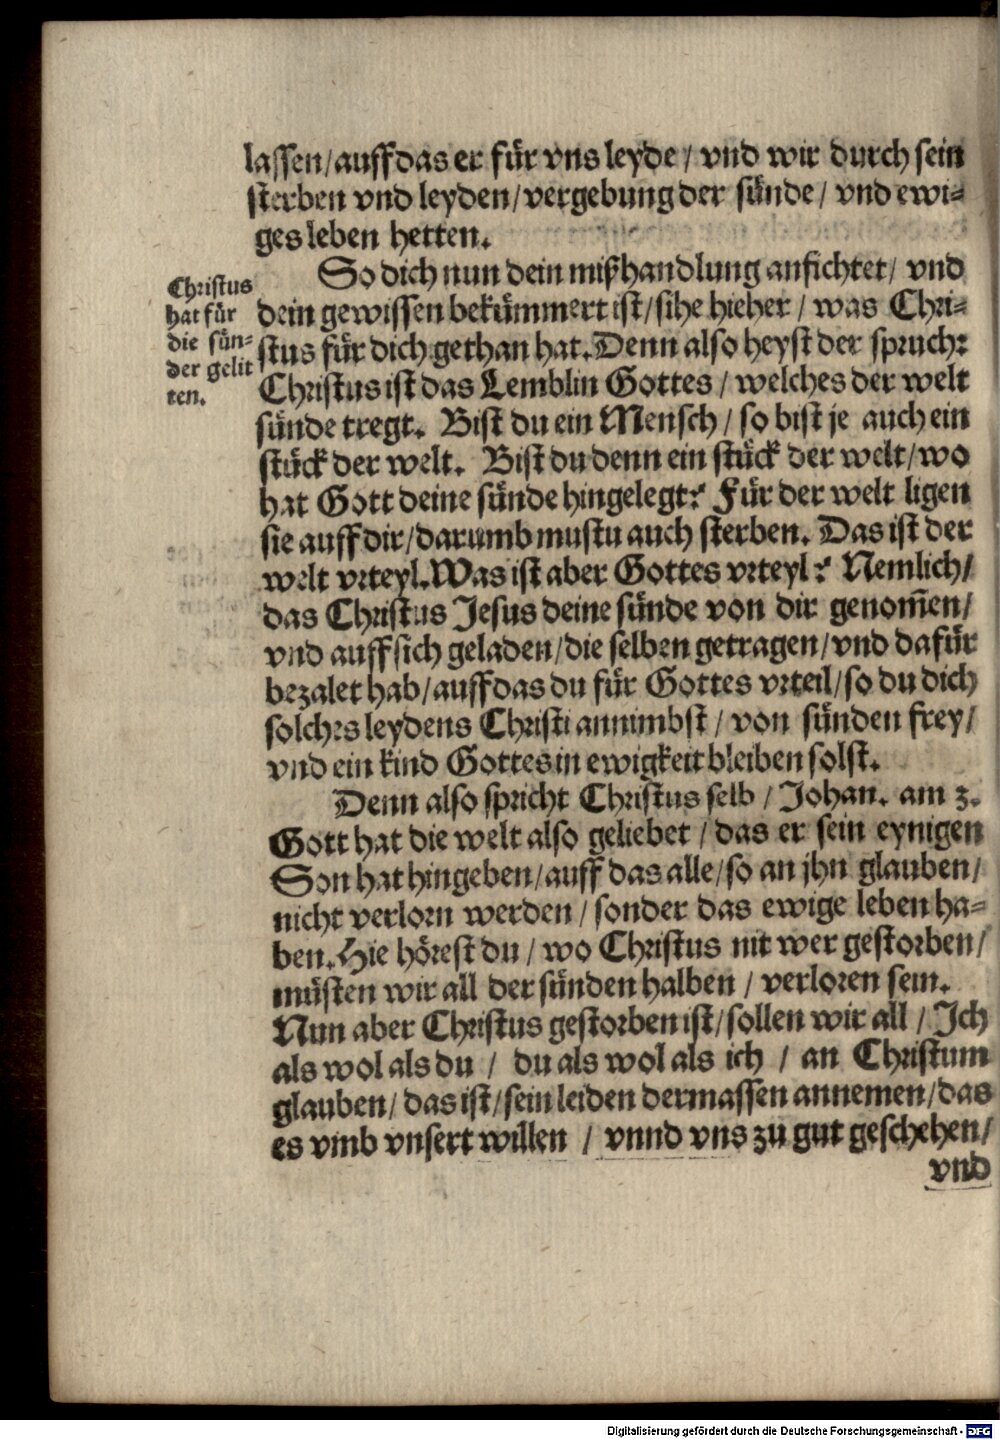 lassen/auff das er für vns leyde / vnd wir durch sein
sterben vnd leyden/vergebung der sünde/ vnd ewi=
ges leben hetten.
So dich nun dein mißhandlung anfichtet/ vnd
dein gewissen bekümmert ist/sihe hieher / was Chri=
stus für dich gethan hat. Denn also heyst der spruch:
Christus ist das Lemblin Gottes / welches der welt
sünde tregt. Bist du ein Mensch / so bist je auch ein
stück der welt. Bist du denn ein stück der welt/wo
hat Gott deine sünde hingelegt? Für der welt ligen
sie auff dir/darumb mustu auch sterben. Das ist der
welt vrteyl. Was ist aber Gottes vrteyl? Nemlich/
das Christus Jesus deine sünde von dir genom̄en/
vnd auff sich geladen/die selben getragen/vnd dafür
bezalet hab/auff das du für Gottes vrteil/so du dich
solches leydens Christi annimbst / von sünden frey/
vnd ein kind Gottes in ewigkeit bleiben solst.
Denn also spricht Christus selb / Johan. am 3.
Gott hat die welt also geliebet / das er sein eynigen
Son hat hingeben/auff das alle/so an jhn glauben/
nicht verlorn werden / sonder das ewige leben ha=
ben. Hie hörest du / wo Christus nit wer gestorben/
müsten wir all der sünden halben / verloren sein.
Nun aber Christus gestorben ist/sollen wir all / Ich
als wol als du / du als wol als ich / an Christum
glauben/ das ist/sein leiden dermassen annemen/das
es vmb vnsert willen / vnnd vns zu gut geschehen/
vnd
Christus
hat für
die sün=
der gelit
ten.
Digitalisierung gefördert durch die Deutsche Forschungsgemeinschaft - DFG